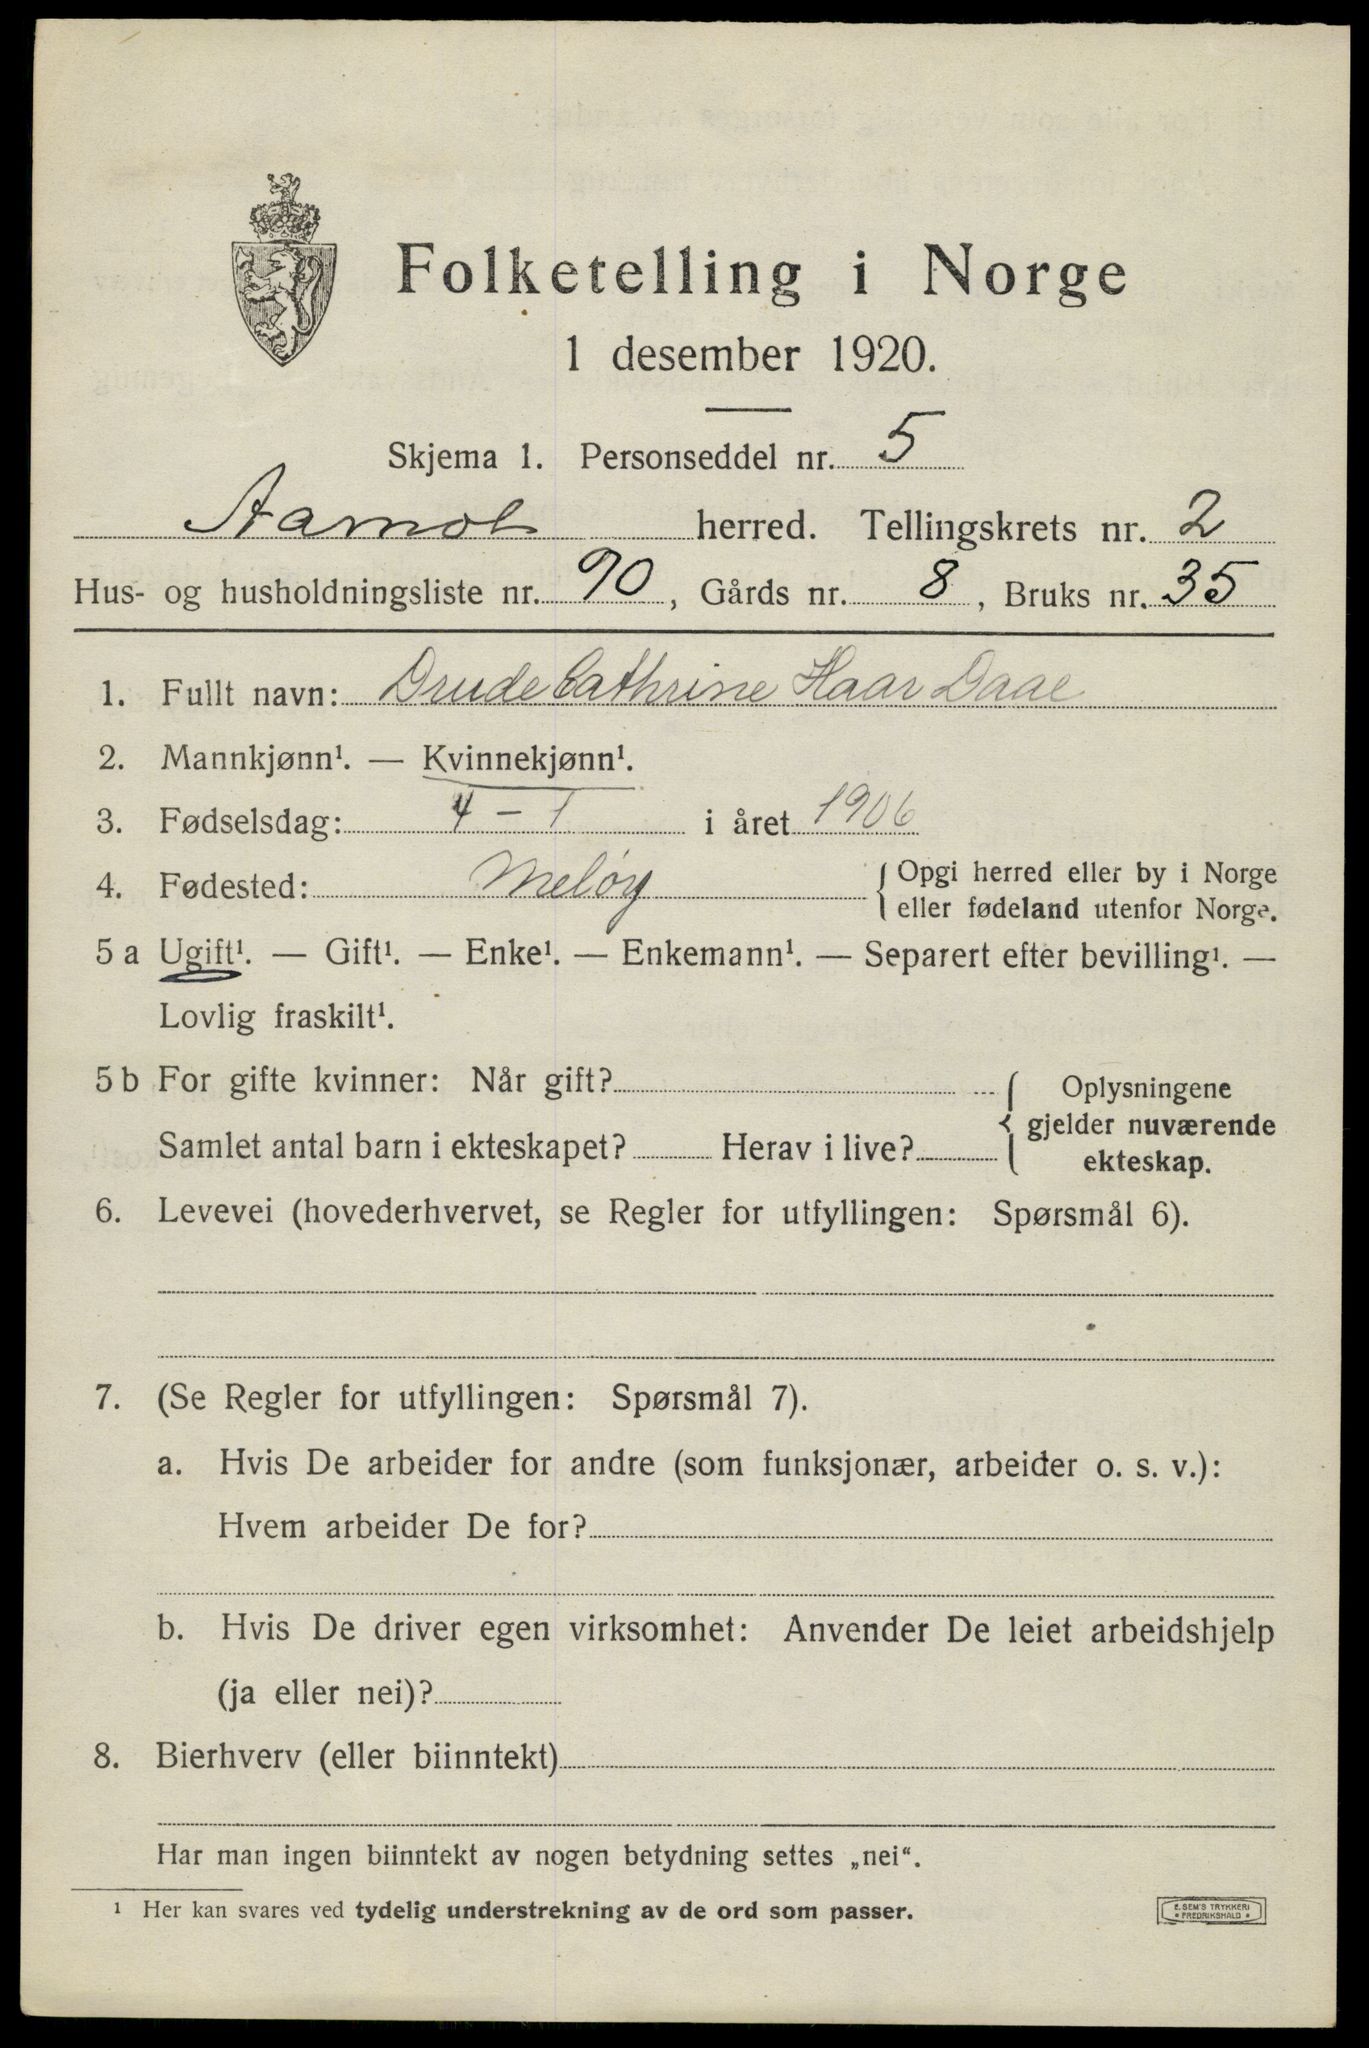 Folketelling i Norge
1 desember 1920.
Skjema 1. Personseddel nr. 5
Aamot herred. Tellingskrets nr. 2
Hus- og husholdningsliste nr. 90, Gårds nr. 8, Bruks nr. 35
1. Fullt navn: Drude Cathrine Haar Daae
2. Mannkjønn¹. — Kvinnekjønn¹.
3. Fødselsdag: 4 – 1 i året 1906
4. Fødested: Meløy { Opgi herred eller by i Norge
eller fødeland utenfor Norge.
5 a Ugift¹. — Gift¹. — Enke¹. — Enkemann¹. — Separert efter bevilling¹. —
Lovlig fraskilt¹.
5 b For gifte kvinner: Når gift?
Samlet antal barn i ekteskapet? Herav i live?
{ Oplysningene
gjelder nuværende
ekteskap.
6. Levevei (hovederhvervet, se Regler for utfyllingen: Spørsmål 6).
7. (Se Regler for utfyllingen: Spørsmål 7).
a. Hvis De arbeider for andre (som funksjonær, arbeider o. s. v.):
Hvem arbeider De for?
b. Hvis De driver egen virksomhet: Anvender De leiet arbeidshjelp
(ja eller nei)?
8. Bierhverv (eller biinntekt)
Har man ingen biinntekt av nogen betydning settes „nei“.
¹ Her kan svares ved tydelig understrekning av de ord som passer.
E. SEM'S TRYKKERI
• FREDRIKSHALD •